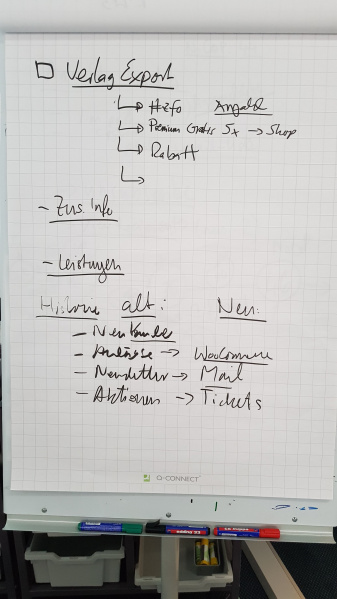 Verlag Export
Angebote
Premium Gratis 5x → Shop
Rabatt
- Zus. Info
- Leistungen
Historie alt: Neu:
- Neukunde
→ WooCommerce
- Newsletter → Mail
- Aktionen → Tickets
Q-CONNECT